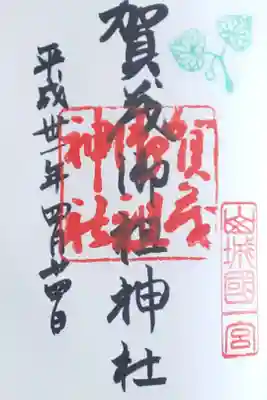 山城國一宮
賀茂御祖神社
賀茂御祖神社
平成卅一年四月廿四日